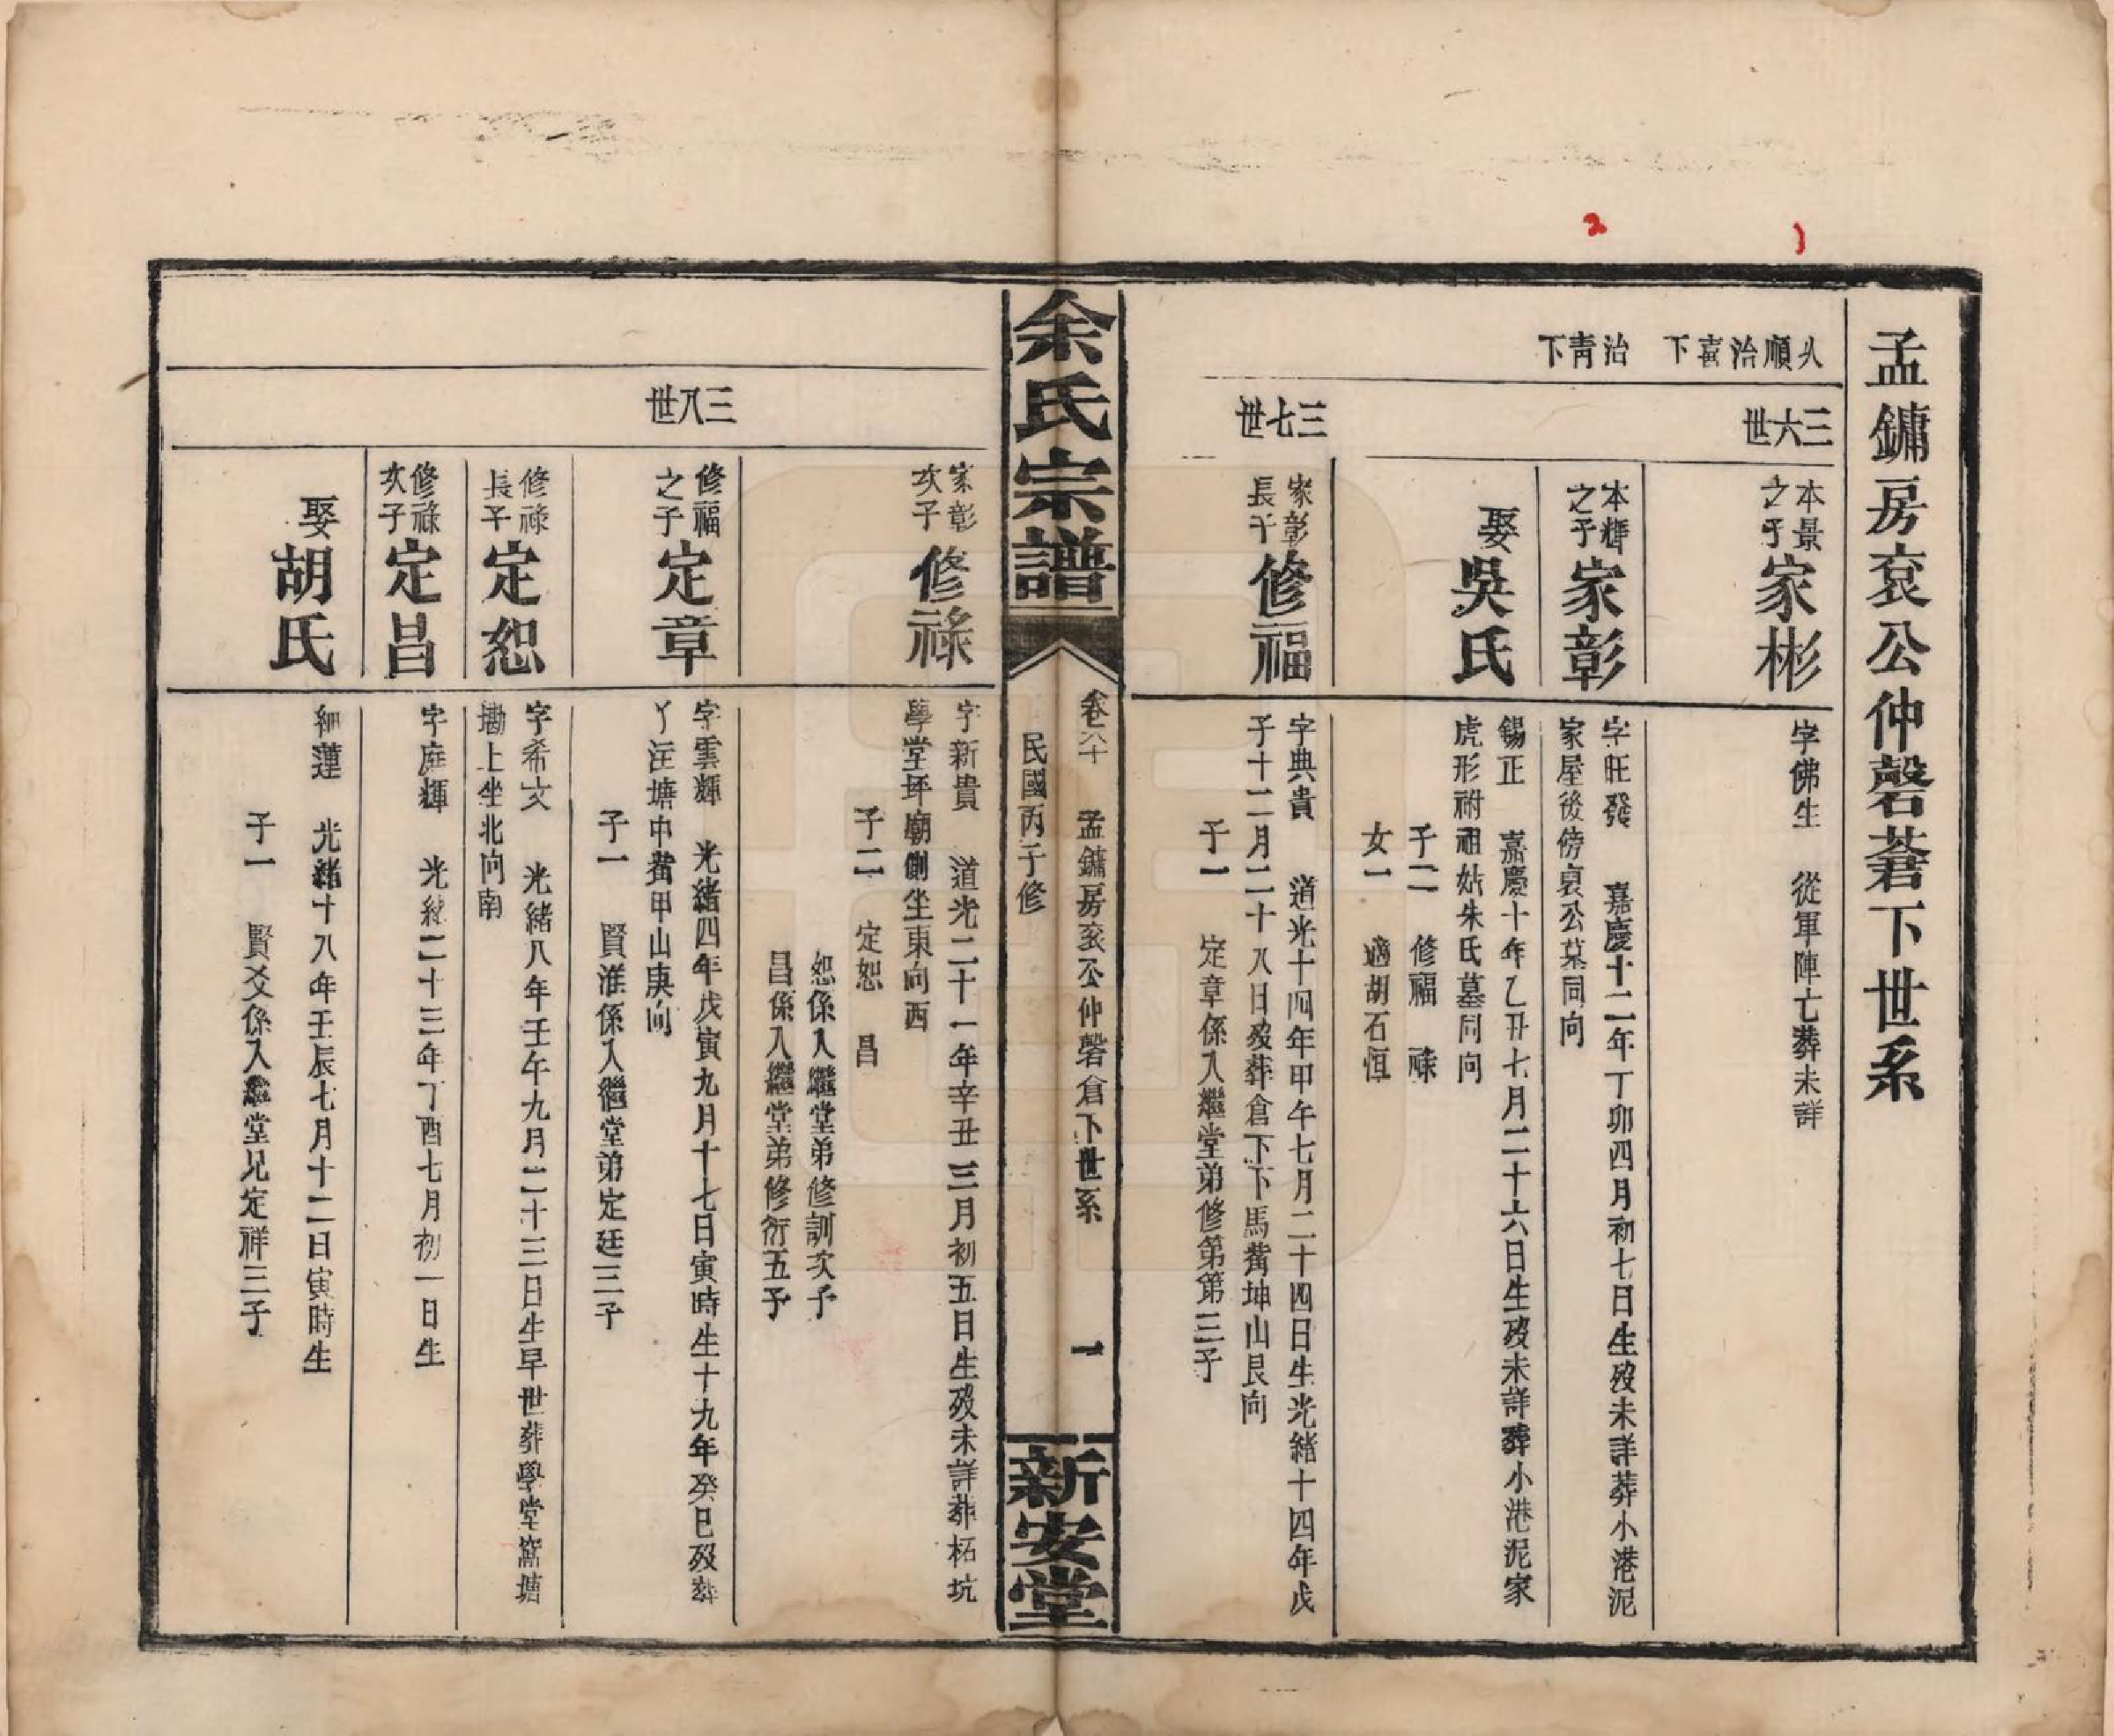 孟鏞房袞公仲磬蒼下世系
順治喜下
治青下
三六世
本景之子 家彬
字佛生 從軍陣亡葬未詳
本輝之子 家彰
字旺發 嘉慶十二年丁卯四月初七日生歿未詳葬小港泥
家屋後傍袞公墓同向
娶 吳氏
錫正 嘉慶十年乙丑七月二十六日生歿未詳葬小港泥家
虎形祔祖姑朱氏墓同向
子二 修福 祿
女一 適胡石恒
三七世
家彰長子 修福
字典貴 道光十四年甲午七月二十四日生光緒十四年戊
子十二月二十八日歿葬倉下下馬嘴坤山艮向
子一 定章係入繼堂弟修第第三子
余氏宗譜
卷六十 孟鏞房袞公仲磬倉下世系 一
民國丙子修
新安堂
家彰次子 修祿
字新貴 道光二十一年辛丑三月初五日生歿未詳葬柘坑
學堂坪廟側坐東向西
子二 定恕 昌
恕係入繼堂弟修訓次子
昌係入繼堂弟修衍五子
三八世
修福之子 定章
字雲輝 光緒四年戊寅九月十七日寅時生十九年癸巳歿葬
丫汪塘中嘴甲山庚向
子一 賢淮係入繼堂弟定廷三子
修祿長子 定恕
字希文 光緒八年壬午九月二十三日生早世葬學堂窩塘
塝上坐北向南
修祿次子 定昌
字庭輝 光緒二十三年丁酉七月初一日生
娶 胡氏
細蓮 光緒十八年壬辰七月十二日寅時生
子一 賢爻係入繼堂兄定祥三子